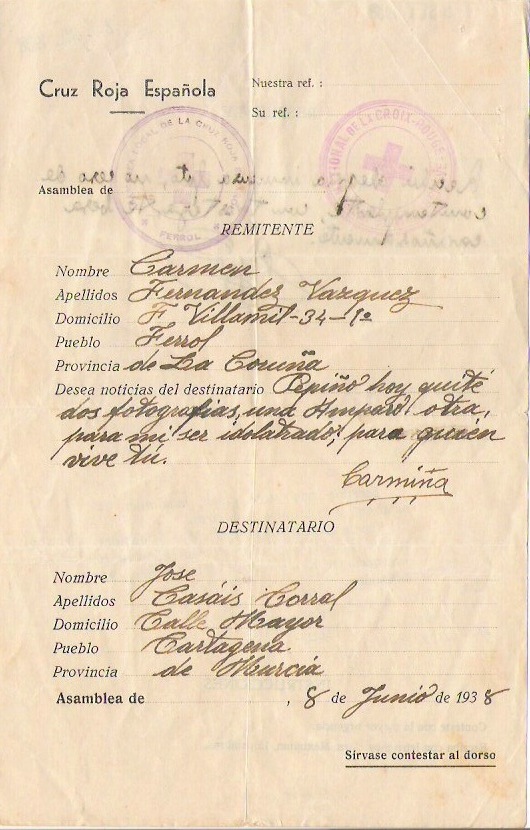 Cruz Roja Española
Nuestra ref. :
Su ref. :
LOCAL DE LA CRUZ ROJA
FERROL
Asamblea de
REMITENTE
Nombre Carmen
Apellidos Fernandez Vazquez
Domicilio F. Villamil-34-1º
Pueblo Ferrol
Provincia de La Coruña
Desea noticias del destinatario Pepiño hoy quité
dos fotografias, una Amparo, otra,
para mi ser idolatrado, para quién
vive tú.
Carmiña
DESTINATARIO
Nombre Jose
Apellidos Casáis Corral
Domicilio Calle Mayor
Pueblo Cartagena
Provincia de Murcia
Asamblea de , 8 de Junio de 1938
Sírvase contestar al dorso